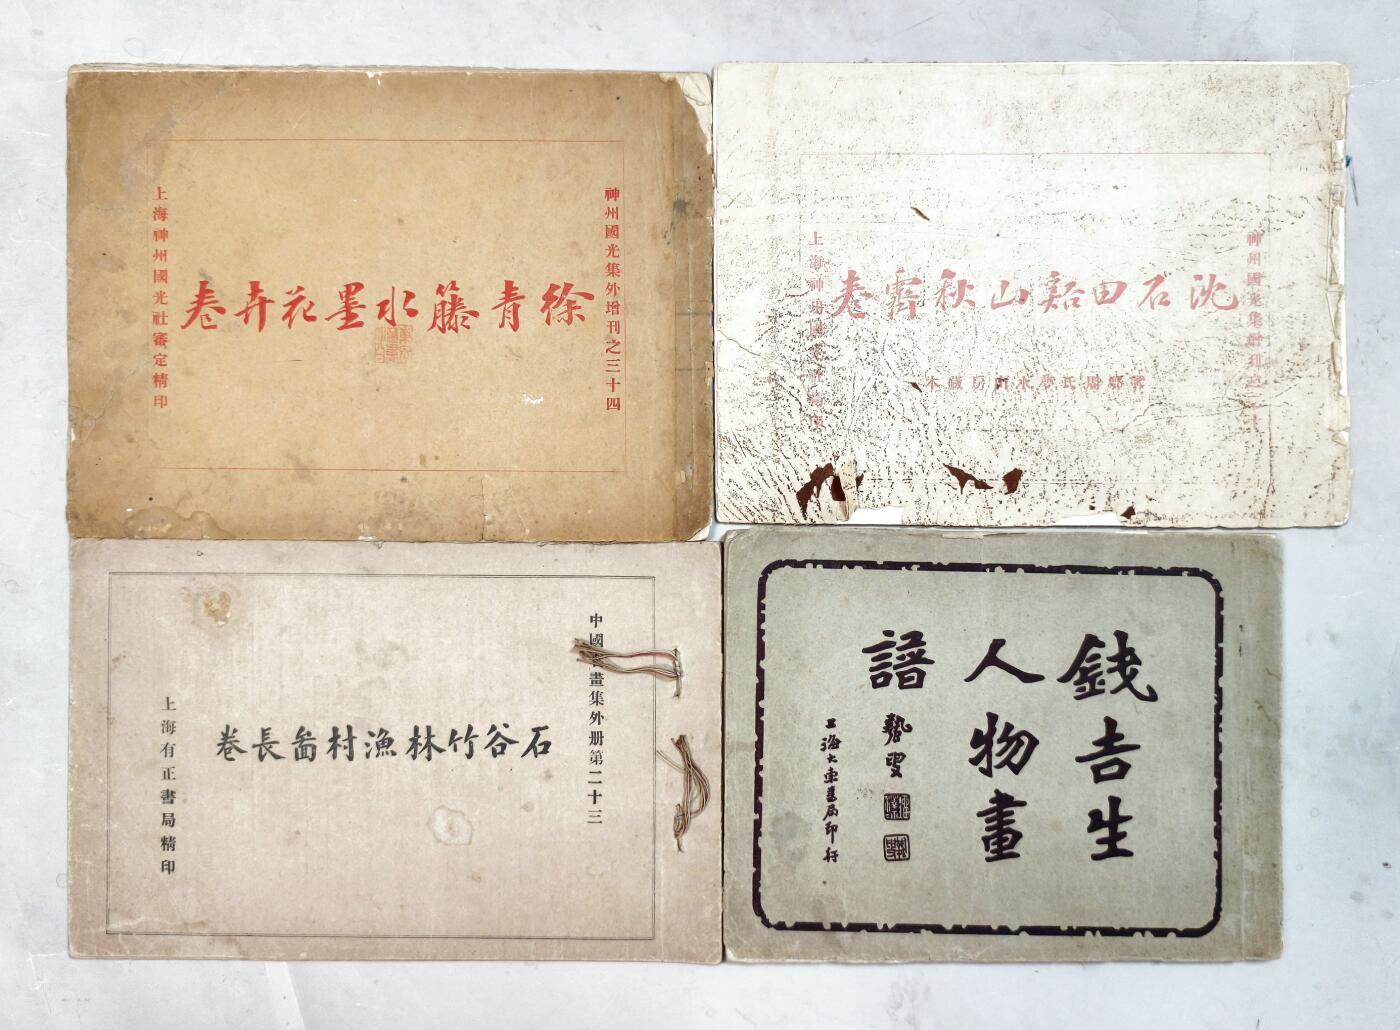 神州國光集外增刊之三十四
徐青藤水墨花卉卷
上海神州國光社審定精印
神州國光集外增刊之
沈石田谿山秋霽卷
上海神州國光社
石谷竹林漁村啚長卷
上海有正書局精印
錢吉生
人物畫
譜
上海大東書局印行